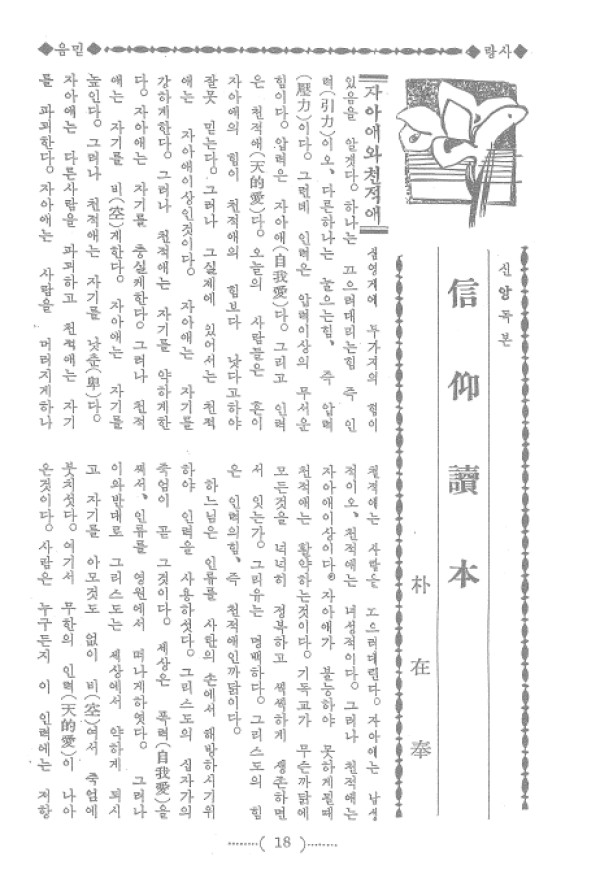 사랑
믿음
신앙독본
信仰讀本
朴在奉
자아애와천적애
심영계에 두가지의 힘이
있음을 알겠다. 하나는 끄으러대리는힘 즉 인
력(引力)이오, 다른하나는 눌으는힘, 즉 압력
(壓力)이다. 그런데 인력은 압력이상의 무서운
힘이다. 압력은 자아애(自我愛)다. 그리고 인력
은 천적애(天的愛)다. 오늘의 사람들은 흔이
자아애의 힘이 천적애의 힘보다 낫다고하야
잘못 믿는다. 그러나 그실제에 있어서는 천적
애는 자아애이상인것이다. 자아애는 자기를
강하게한다. 그러나 천적애는 자기를 약하게한
다. 자아애는 자기를 충실케한다. 그러나 천적
애는 자기를 비(空)게한다. 자아애는 자기를
높인다. 그러나 천적애는 자기를 낫춘(卑)다.
자아애는 다른사람을 파괴하고 천적애는 자기
를 파괴한다. 자아애는 사람을 머러지게하나
천적애는 사람을 끄으러대린다. 자아애는 남성
적이오, 천적애는 녀성적이다. 그러나 천적애는
자아애이상이다. 자아애가 불능하야 못하게될때
천적애는 활약하는것이다. 기독교가 무슨까닭에
모든것을 넉넉히 정복하고 씩씩하게 생존하면
서 잇는가. 그리유는 명백하다. 그리스도의 힘
은 인력의힘, 즉 천적애인까닭이다.
하느님은 인류를 사탄의 손에서 해방하시기위
하야 인력을 사용하섯다. 그리스도의 십자가의
죽엄이 곧 그것이다. 세상은 폭력(自我愛)을
써서, 인류를 영원에서 떠나게하엿다. 그러나
이와반대로 그리스도는 세상에서 약하게 되시
고 자기를 아모것도 없이 비(空)여서 죽엄에
붓치섯다. 여기서 무한의 인력(天的愛)이 나아
온것이다. 사람은 누구든지 이 인력에는 저항
( 18 )